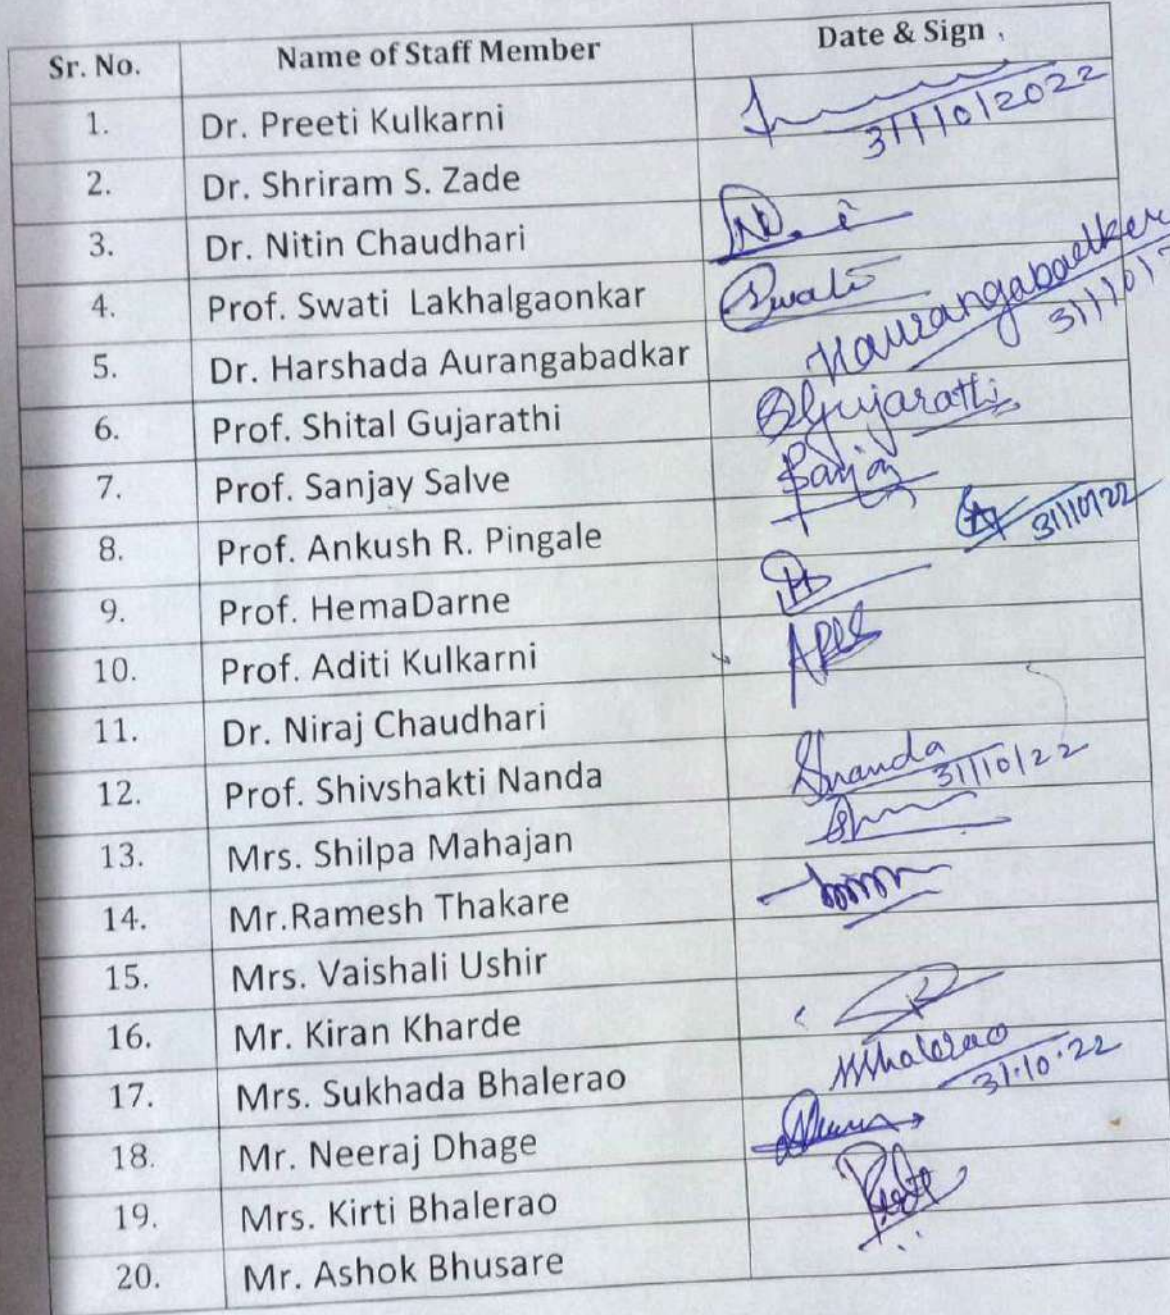 Sr. No. Name of Staff Member Date & Sign
1. Dr. Preeti Kulkarni 31/10/2022
2. Dr. Shriram S. Zade
3. Dr. Nitin Chaudhari
4. Prof. Swati Lakhalgaonkar Swati
5. Dr. Harshada Aurangabadkar Haurangabadker 31/10/
6. Prof. Shital Gujarathi SGujarathi
7. Prof. Sanjay Salve Sanjay
8. Prof. Ankush R. Pingale 31/10/22
9. Prof. HemaDarne
10. Prof. Aditi Kulkarni
11. Dr. Niraj Chaudhari
12. Prof. Shivshakti Nanda Snanda 31/10/22
13. Mrs. Shilpa Mahajan
14. Mr.Ramesh Thakare
15. Mrs. Vaishali Ushir
16. Mr. Kiran Kharde
17. Mrs. Sukhada Bhalerao 31.10.22
18. Mr. Neeraj Dhage
19. Mrs. Kirti Bhalerao
20. Mr. Ashok Bhusare